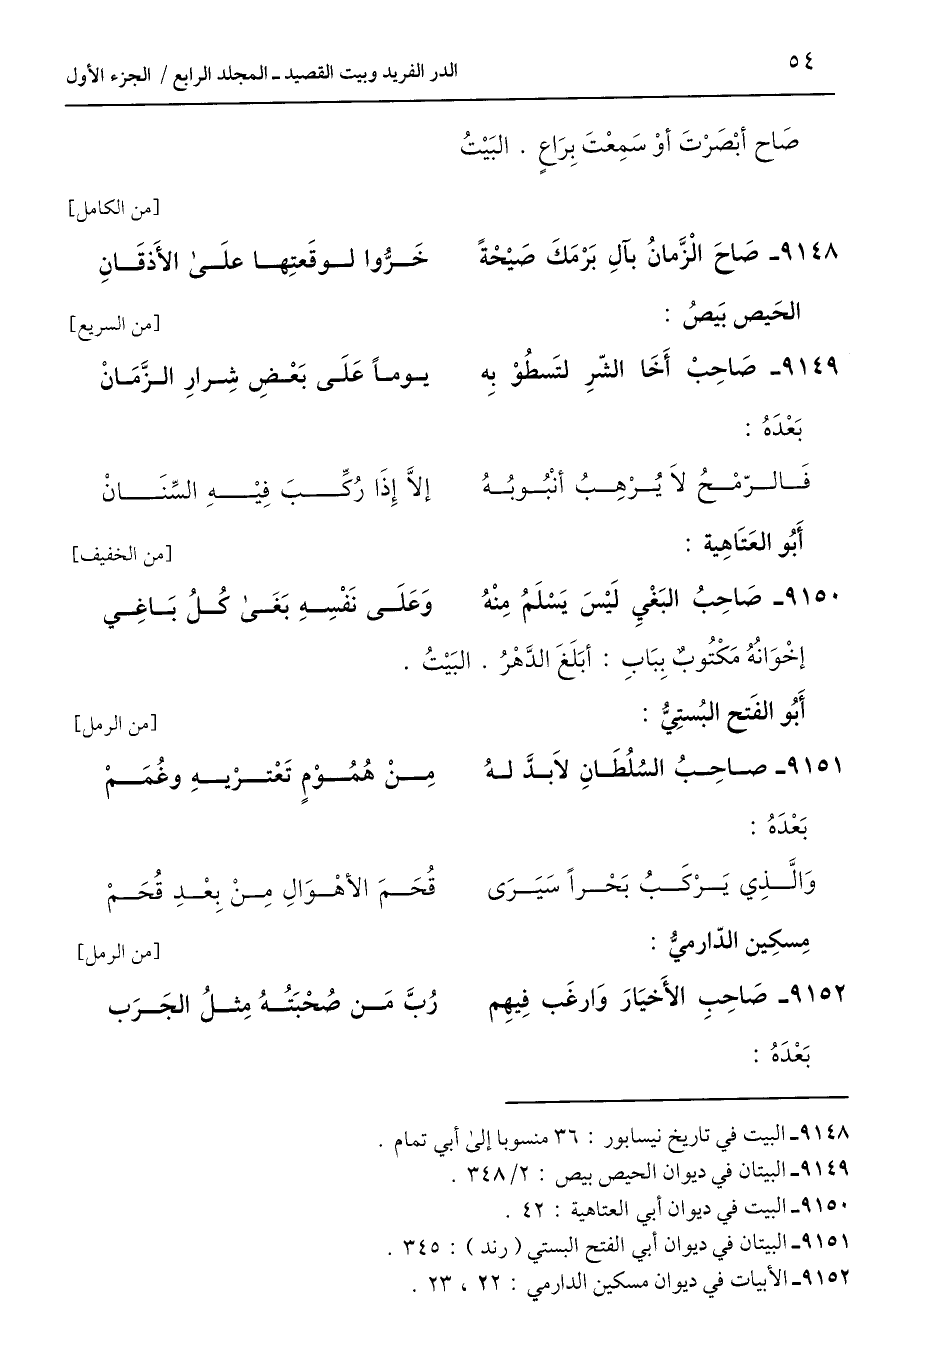 ٥٤
الدر الفريد وبيت القصيد ـ المجلد الرابع / الجزء الأول
صَاحِ أبْصَرْتَ أوْ سَمِعْتَ بِرَاعٍ . البَيْتُ
[من الكامل]
٩١٤٨ـ صَاحَ الْزَّمانُ بآلِ بَرْمَكَ صَيْحْةً خَــرُّوا لــوقَعتِهــا علَــىٰ الأَذقَــانِ
الحَيص بَيصُ :
[من السريع]
٩١٤٩ـ صَاحِبْ أَخَا الشّرِ لتَسطُوْ بِه يومـاً عَلَـى بَعْـضِ شِـرارِ الـزَّمَـانْ
بَعْدَهُ :
فَـالـرّمْـحُ لاَ يُـرْهِـبُ أنْبُـوبُـهُ إلاَّ إِذَا رُكِّـبَ فِيْـهِ السِّنَـانْ
أَبُو العَتَاهِية :
[من الخفيف]
٩١٥٠ـ صَاحِبُ البَغْيِ لَيْسَ يَسْلَمُ مِنْهُ وَعَلَـى نَفْسِـهِ بَغَـىٰ كُـلُ بَـاغِـي
إخْوَانُهُ مَكْتُوبٌ بِبَابِ : أبَلَغَ الدَّهْرُ . البَيْتُ .
أَبُو الفَتح البُستِيُّ :
[من الرمل]
٩١٥١ـ صـاحِـبُ السُلْطَـانِ لاَبـدَّ لـهُ مِـنْ هُمُـوْمٍ تَعْتـرْيـهِ وغُمَـمْ
بَعْدَهُ :
وَالَّـذِي يَـرْكَـبُ بَحْـراً سَيَـرَى قُحَـمَ الأهْـوَالِ مِـنْ بِعْـدِ قُحَـمْ
مِسكِين الدّارميُّ :
[من الرمل]
٩١٥٢ـ صَاحِبِ الأَخيَارَ وَارغَب فِيهِم رُبَّ مَـن صُحْبَتُـهُ مِثـلُ الجَـرَب
بَعْدَهُ :
٩١٤٨ـ البيت في تاريخ نيسابور : ٣٦ منسوبا إلىٰ أبي تمام .
٩١٤٩ـ البيتان في ديوان الحيص بيص : ٢/ ٣٤٨ .
٩١٥٠ـ البيت في ديوان أبي العتاهية : ٤٢ .
٩١٥١ـ البيتان في ديوان أبي الفتح البستي ( رند ) : ٣٤٥ .
٩١٥٢ـ الأبيات في ديوان مسكين الدارمي : ٢٢ ، ٢٣ .